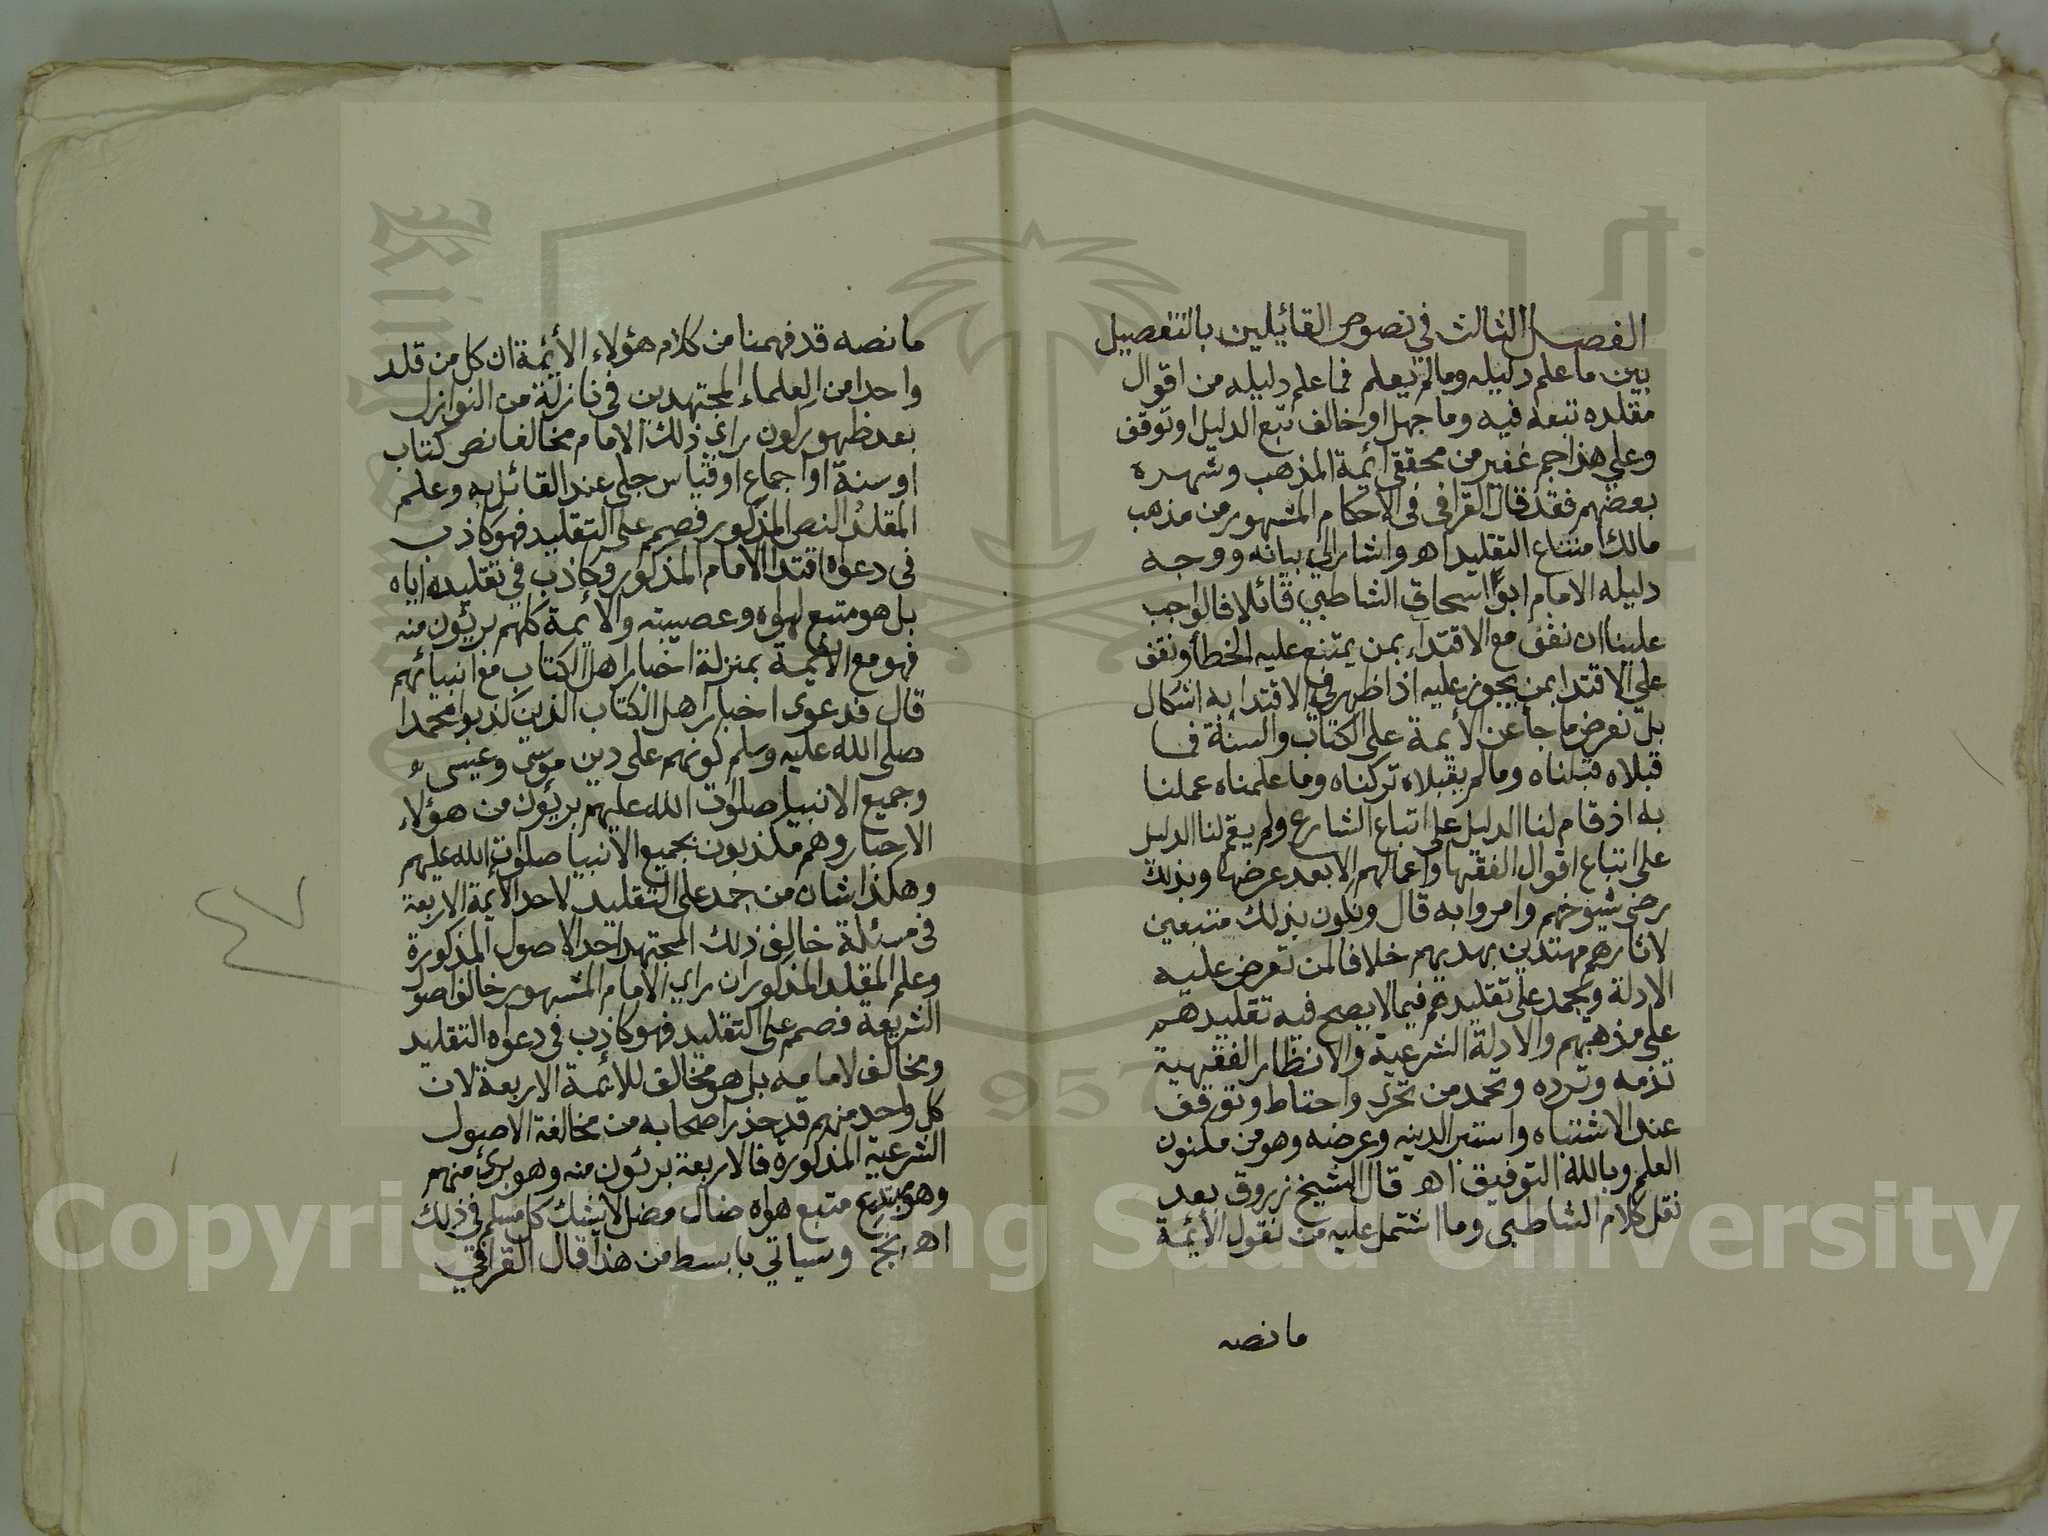 الفصل الثالث في نصوص القائلين بالتفصيل
بين ما علم دليله ومالم يعلم فما علم دليله من اقوال
مقلده تبعه فيه وما جهل او خالف تبع الدليل او توقف
وعلي هذا جم غفير من محققي ائمة المذهب وشهره
بعضهم فقد قال القرافي في الاحكام المشهور من مذهب
مالك امتناع التقليد اهـ واشار الي بيانه ووجه
دليله الامام ابو اسحاق الشاطبي قائلا فالواجب
علينا ان نقف مع الاقتداء بمن يمتنع عليه الخطأ ونقف
علي الاقتدا بمن يجوز عليه اذا ظهر في الاقتدا به اشكال
بل نعرض ما جا عن الأيمة علي الكتاب والسنة فما
قبلاه قبلناه ومالم يقبلاه تركناه وما علمناه عملنا
به اذ قام لنا الدليل علي اتباع الشارع ولم يقم لنا الدليل
علي اتباع اقوال الفقها واعمالهم الا بعد عرضها وبذلك
رضي شيوخهم وامروا به قال ونكون بذلك متبعين
لاثارهم مهتدين بهديهم خلافا لمن تعرض عليه
الادلة ويجمد علي تقليدهم فيما لا يصح فيه تقليدهم
علي مذهبهم والادلة الشرعية والانظار الفقهية
تذمه وترده وتحمد من تحري واحتاط وتوقف
عند الاشتباه واستبرا لدينه وعرضه وهو من مكنون
العلم وبالله التوفيق اهـ قال الشيخ زروق بعد
نقل كلام الشاطبي وما اشتمل عليه من نقول الأيمة
ما نصه
ما نصه قد فهمنا من كلام هؤلاء الأيمة ان كل من قلد
واحدا من العلماء المجتهدين في نازلة من النوازل
بعد ظهور كون راي ذلك الامام مخالفا نص كتاب
او سنة او اجماع او قياس جلي عند القائل به وعلم
المقلد النص المذكور فصمم علي التقليد فهو كاذب
في دعواه اقتدا الامام المذكور وكاذب في تقليده اياه
بل هو متبع لهواه وعصبيته والأيمة كلهم بريئون منه
فهو مع الأيمة بمنزلة احبار اهل الكتاب مع انبيائهم
قال فدعوى احبار اهل الكتاب الذين كذبوا محمدا
صلى الله عليه وسلم كونهم على دين موسى وعيسى
وجميع الانبيا صلوات الله عليهم بريئون من هؤلاء
الاحبار وهم مكذبون بجميع الانبيا صلوات الله عليهم
وهكذا شان من جمد علي التقليد لاحد الأيمة الاربعة
في مسئلة خالف ذلك المجتهد احد الاصول المذكورة
وعلم المقلد المذكور ان راي الامام المشهور خالف اصول
الشريعة فصمم علي التقليد فهو كاذب في دعواه التقليد
ومخالف لامامه بل هو مخالف للأيمة الاربعة لان
كل واحد منهم قد حذر اصحابه من مخالفة الاصول
الشرعية المذكورة فالاربعة بريئون منه وهو بريئ منهم
وهو مبتدع متبع هواه ضال مضل لا يشك كل مسلم في ذلك
اهـ بخ وسياتي بابسط من هذا قال القرافي
٤٧
Copyright © King Saud University
1957